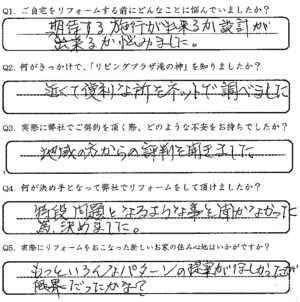 Q1. ご自宅をリフォームする前にどんなことに悩んでいましたか？
期待する施行が出来るか設計が
出来るか悩みました。
Q2. 何がきっかけで、「リビングプラザ滝の神」を知りましたか？
近くて便利な所をネットで調べました
Q3. 実際に弊社でご契約を頂く際、どのような不安をお持ちでしたか？
地域の方からの評判を聞きました
Q4. 何が決め手となって弊社でリフォームをして頂けましたか？
特段問題となるような事を聞かなかった
為、決めました。
Q5. 実際にリフォームをおこなった新しいお家の住み心地はいかがですか？
もっといろんなパターンの提案がほしかったが
限界だったかな？